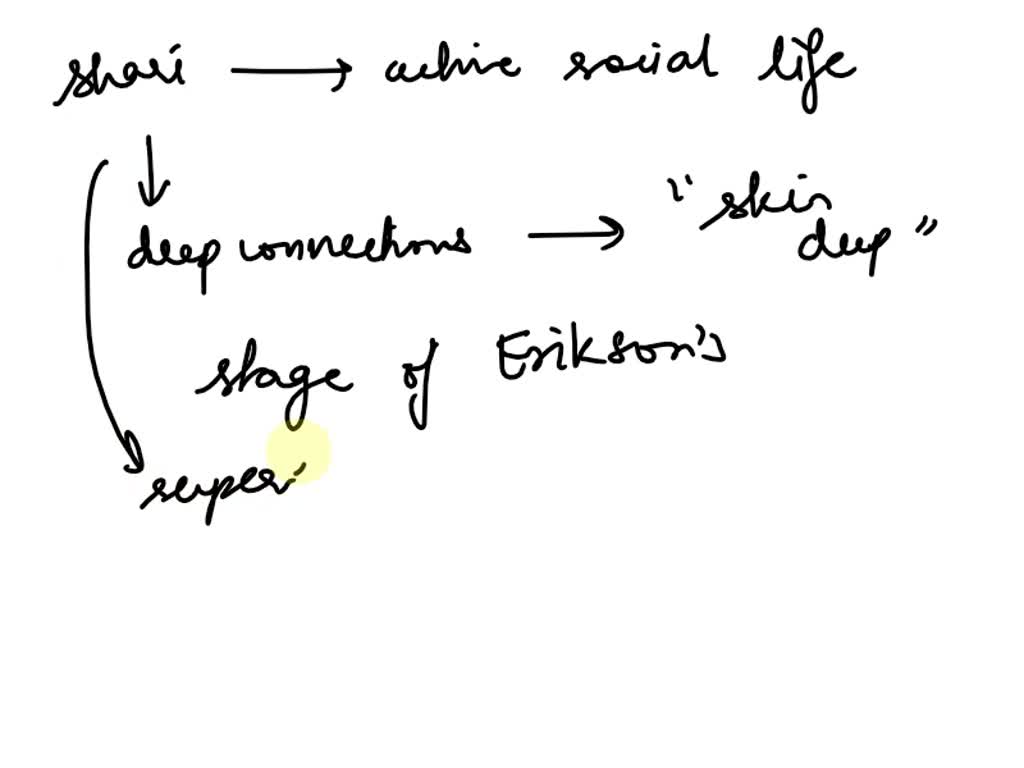 shari → active social life
deep connections → "skin deep"
stage of Erikson's
superi